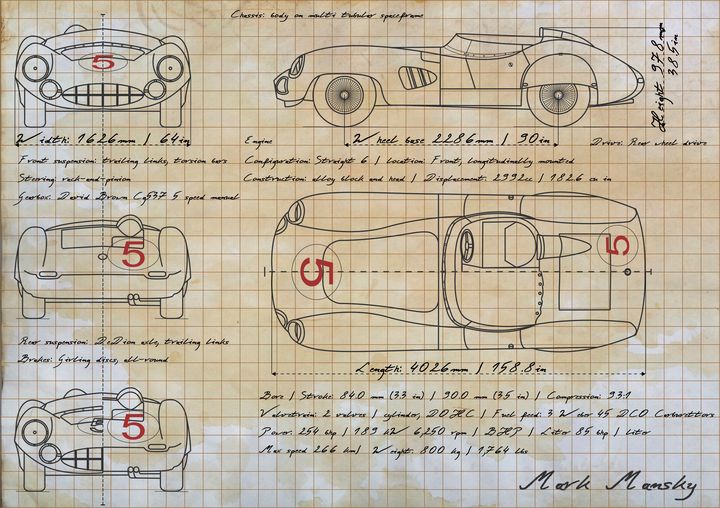 Chassis: body on multi tubular spaceframe
5
Height: 978 mm
38.5 in
Width: 1626 mm | 64 in
Engine
Wheel base 2286 mm | 90 in
Drive: Rear wheel drive
Front suspension: trailing links, torsion bars
Configuration: Straight 6 | Location: Front, longitudinally mounted
Steering rack-and-pinion
Construction: alloy block and head | Displacement: 2992cc | 182.6 cu in
Gearbox: David Brown Cg537 5 speed manual
5
5
5
Rear suspension: DeDion axle, trailing links
Brakes: Girling discs, all-round
Length: 4026 mm | 158.8 in
5
Bore | Stroke: 84.0 mm (3.3 in) | 90.0 mm (3.5 in) | Compression: 9.3:1
Valvetrain: 2 valves | cylinder, DOHC | Fuel feed: 3 Weber 45 DCO Carburettors
Power: 254 hp | 189 kW | 6,250 rpm | BHP | Liter 85 hp | liter
Max speed 266 km| Weight: 800 kg | 1,764 lbs
Mark Mansky